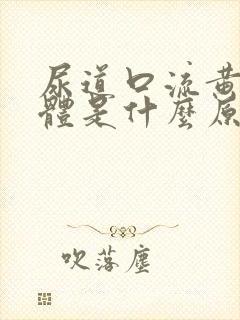 尿道口流黃
體是什麼原
吹落塵